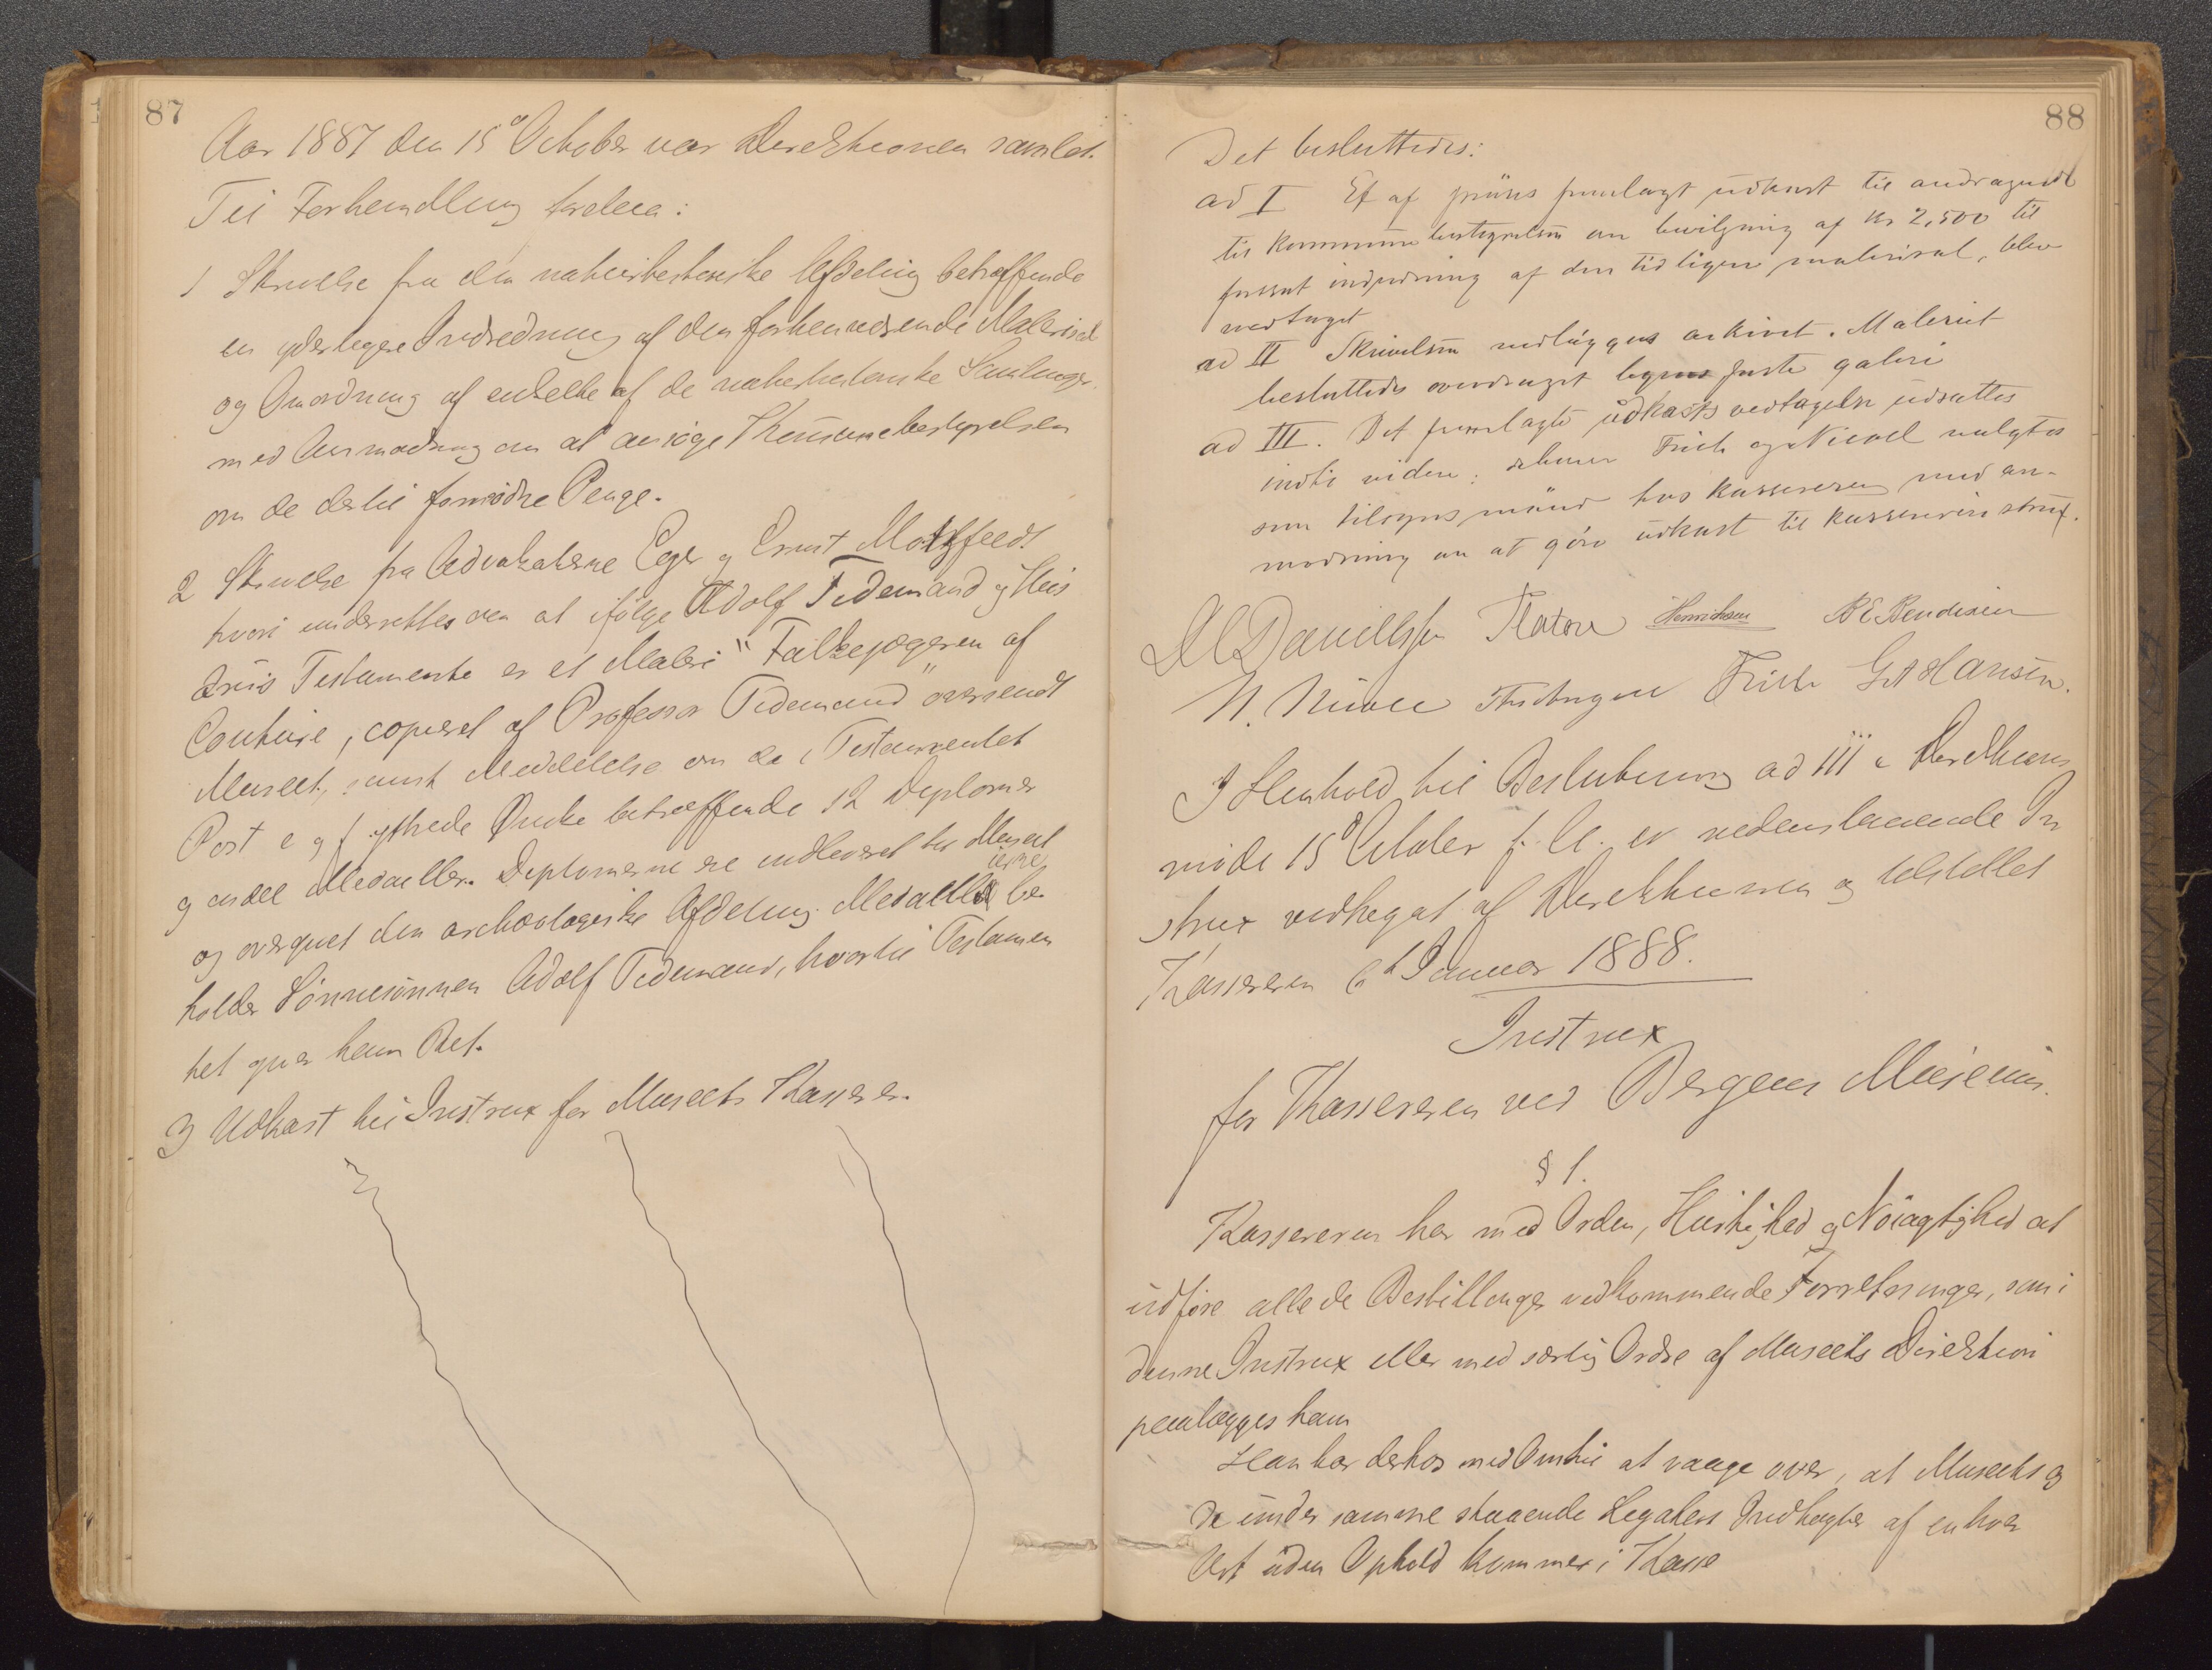 87
Aar 1887 den 15de October var Direktionen samlet.
Til Forhandling forelaa:
1 Skrivelse fra den naturhistoriske Afdeling betræffende
en yderligere Indredning af den forhenværende Malerisal
og Anordning af enkelte af de naturhistoriske Samlinger
med Anmodning om at ansøge Kommunebestyrelsen
om de dertil fornødne Penge.
2 Skrivelse fra Advokaterne Eger og Ernst Motzfeldt
hvori underrettes om at ifølge Adolf Tidemand og Hustrus
Testamente er et Maleri "Falkejægeren af
Couture, copieret af Professor Tidemand" oversendt
Museet, samt Meddelelse om de i Testamentet
Post e og f yttrede Ønske betræffende 12 Diplomer
og endel Medaller. Diplomerne ere indleveret til Museet
og overgivet den archæologiske Afdeling. Medallierne be
holder Sønnesønnen Adolf Tidemand, hvortil Testamen
tet giver ham Ret.
3 Udkast til Instrux for Museets Kasserer.
88
Det besluttedes:
ad I Et af præses fremlagt udkast til andragende
til kommunebestyrelsen om bevilgning af Kr 2,500 til
forsat indredning af den tidligere malerisal, blev
vedtaget
ad II Skrivelsen vedlægges arkivet. Maleriet
besluttedes overdraget byens faste galeri
ad III. Det fremlagte udkasts vedtagelse udsattes
indtil videre; dhrr Friele og Nicoll valgtes
som tilsynsmænd hos kassereren med an-
modning om at gøre udkast til kassererinstrux.
DC Danielssen Platou Henrichsen B E Bendixen
N. Nicoll Friele G A Hansen.
I Henhold til Beslutning ad III i Direktions
møde 15de October f. A. er nedenstaaende In
strux vedtaget af Direktionen og tilstillet
Kassereren 6te Januar 1888.
Instrux
for Kassereren ved Bergens Museum.
§ 1.
Kassereren har med Orden, Hurtighed og Nöiagtighed at
udføre alle de Bestillinger vedkommende Forretninger, som i
denne Instrux eller med særlig Ordre af Museets Direktion
paalægges ham
Han har derhos med Omhu at vaage over, at Museets og
de under samme staaende Legaters Indtægter af enhver
Art uden Ophold kommer i Kasse